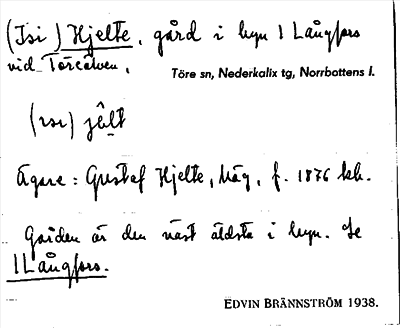 (Isi) Hjelte, gård i byn 1 Långfors
vid Töreälven,
Töre sn, Nederkalix tg, Norrbottens l.
(ısı) jêlt
Ägare: Gustaf Hjelte, häg, f. 1876 kb.
Gården är den näst äldsta i byn. Se
1 Långfors.
EDVIN BRÄNNSTRÖM 1938.